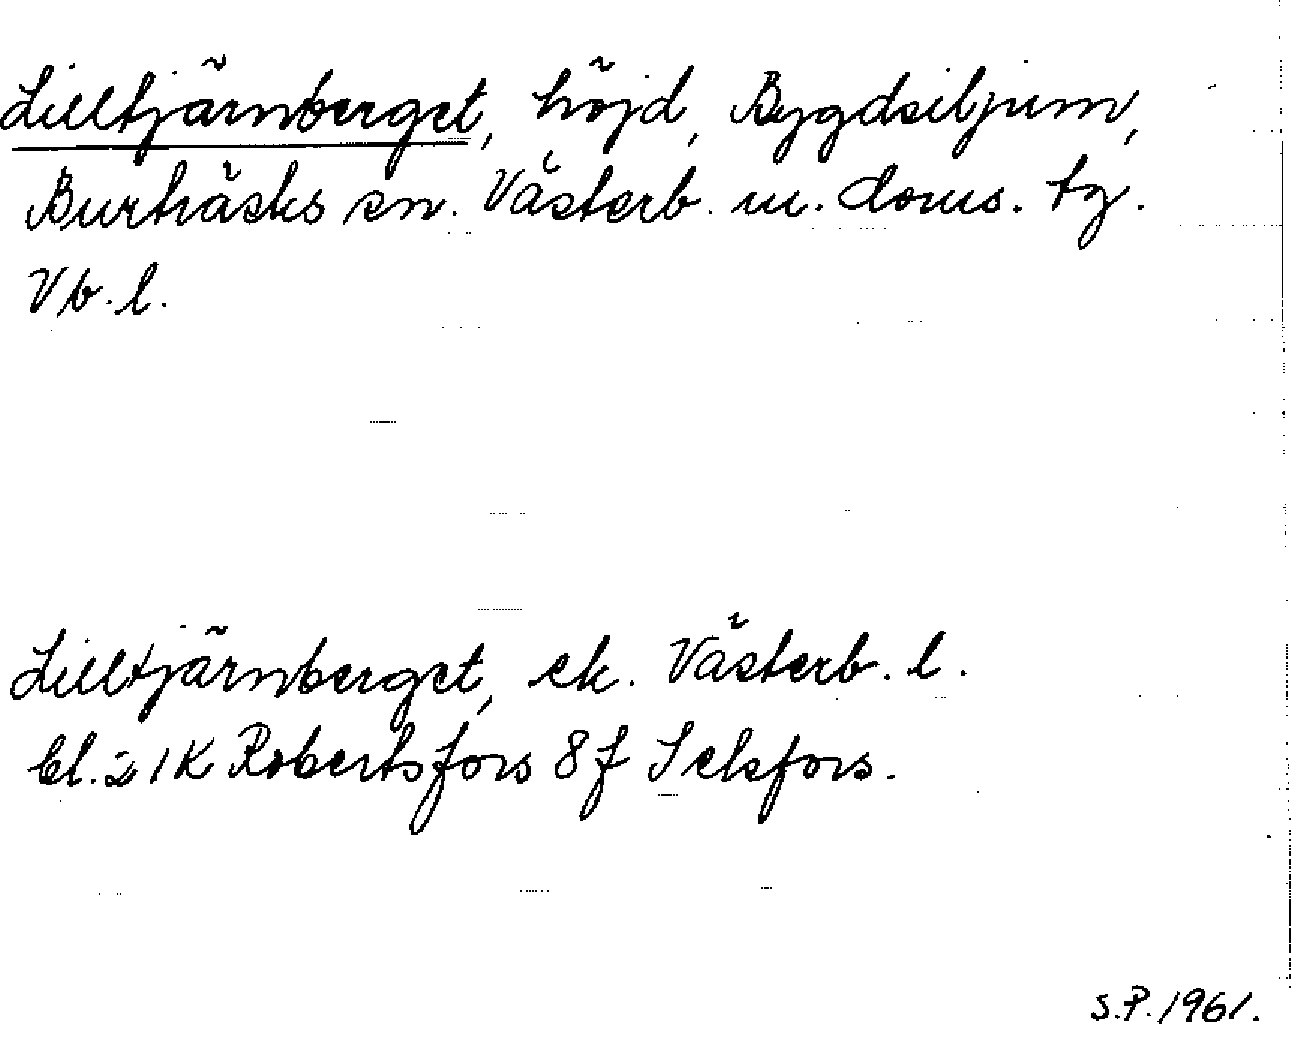 Lilltjärnberget, höjd, Bygdsiljum,
Burträsks sn. Västerb. m. doms. tg.
Vb. l.
Lilltjärnberget, ek. Västerb. l.
bl. 21K Robertsfors 8f Selsfors.
S.P. 1961.